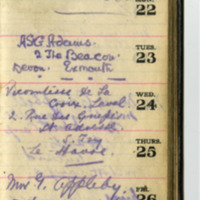 MON.
22
ASG Adams.
2 The Beacon
TUES.
23
Devon. Exmouth
Vicomtesse de La
WED.
24
2. Rue des
St Adresse
THURS.
25
Le Havre
Mrs G. Appleby.
FRI.
26